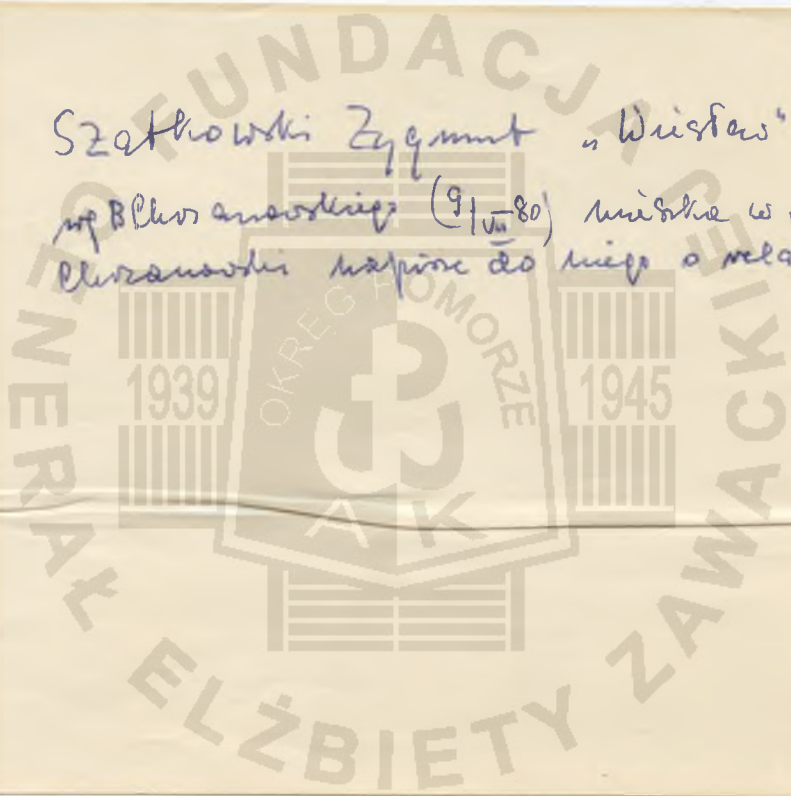 Szatkowski Zygmunt „Wiesław"
wg B Chrzanowskiego (9/VII-80) mieszka w
Chrzanowski napisze do niego o rela
FUNDACJA
GENERAŁ ELŻBIETY ZAWACKIEJ
OKRĘG POMORZE
1939
1945
AK